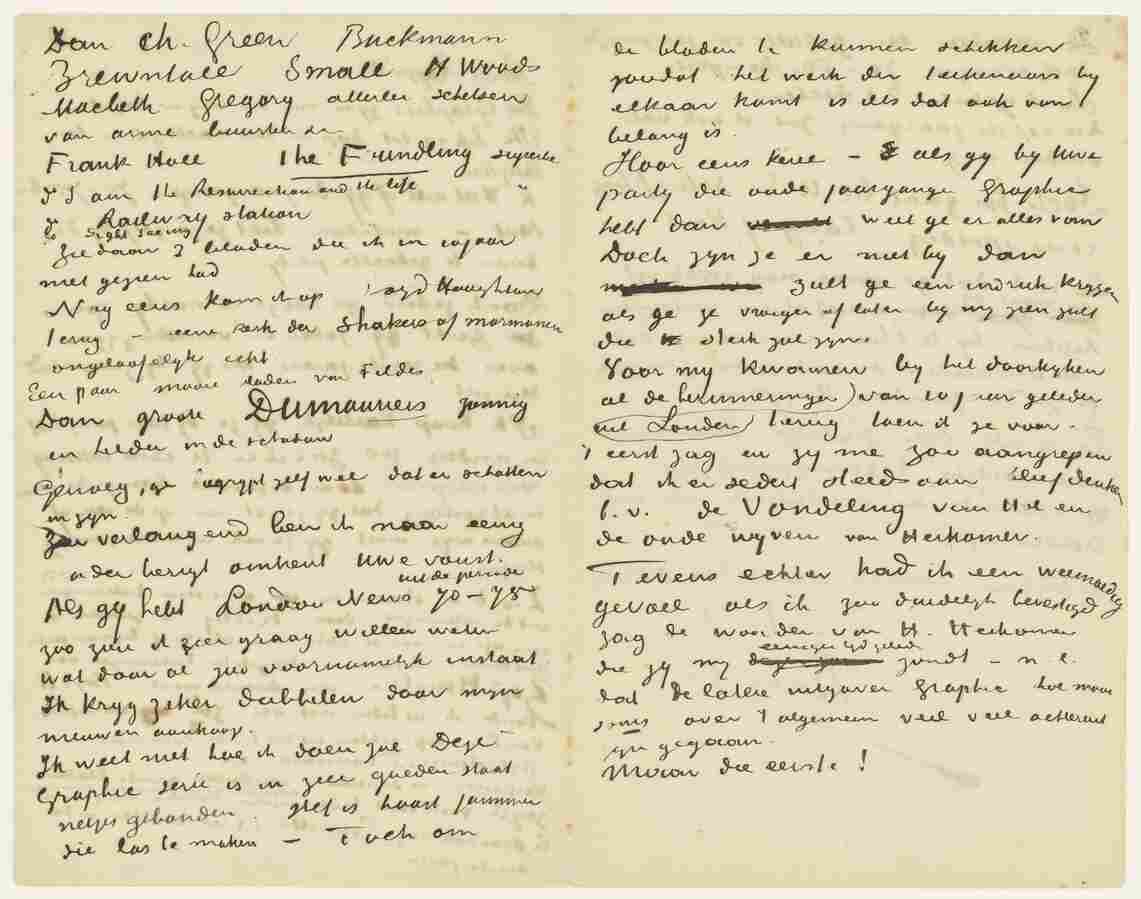 Dan Ch. Green Buckmann
Brewntall Small H Woods
Macbeth Gregory allerlei schetsen
van arme buurten &c
Frank Holl The Fundling superbe
do I am the Resurrection and the life "
do Railway station
do Sight Seeing
Ziedaar 3 bladen die ik in 10 jaar
niet gezien had
Nog eens kom ik op Boyd Houghton
terug – eene kerk der Shakers of mormonen
ongelooflijk echt
Een paar mooie bladen van Fildes
Dan groote DUMAURIERS zonnig
en helder in de schaduw
Genoeg, ge begrypt zelf wel dat er schatten
in zyn
Zeer verlangend ben ik naar eenig
nader berigt omtrent Uwe vonst.
Als gy hebt London News uit de periode 70–75
zoo zou ik zeer graag willen weten
wat daar al zoo voornamelyk instaat
Ik kryg zeker dubbelen door myn
nieuwen aankoop.
Ik weet niet hoe ik doen zal Deze
Graphic serie is in zeer goeden staat
netjes gebonden. Het is haast jammer
die los te maken — Toch om
de bladen te kunnen schikken
zoodat het werk der teekenaars by
elkaar komt is iets dat ook van
belang is.
Hoor eens kerel – als gy by Uwe
party die oude jaargangen Graphic
hebt dan weet ge er alles van
Doch zyn ze er niet by dan
zult ge een indruk krygen
als ge ze vroeger of later by my zien zult
die sterk zal zyn.
Voor my kwamen by het doorkyken
al de herinneringen van 10 jaar geleden
uit Londen terug toen ik ze voor
't eerst zag en zy me zoo aangrepen
dat ik er sedert steeds aan bleef denken
b.v. de Vondeling van Hol en
de oude wyven van Herkomer.
Tevens echter had ik een weemoedig
gevoel als ik zoo duidelyk bevestigd
zag de woorden van H. Herkomer
die gy my eenigen tyd geleden zondt – n.l.
dat de latere uitgaven Graphic hoe mooi
soms over 't algemeen veel veel achteruit
zyn gegaan.
Maar die eerste!